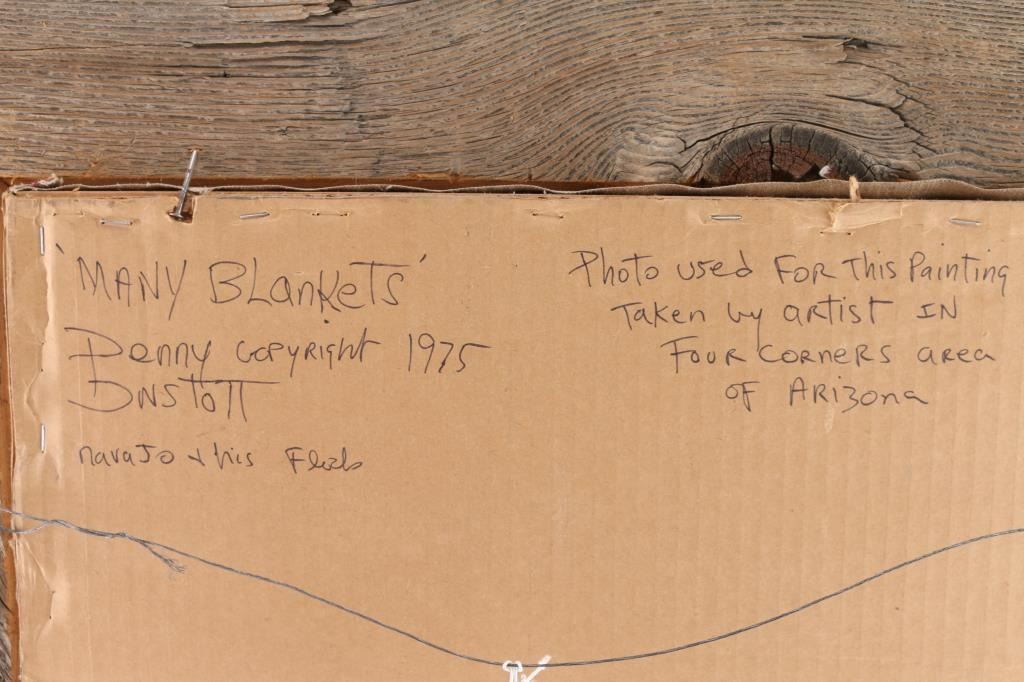 'MANY BLanKeTs'
Denny copyright 1975
DNSTOTT
navajo + his
Photo used For This Painting
Taken by artist IN
Four Corners area
OF ARIZona